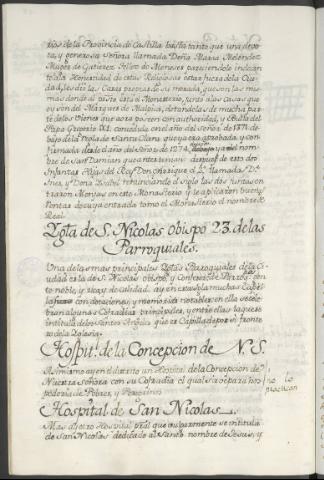 rios de la Provincia de Castilla hasta tanto que una devo-
ta, y generosa Señora llamada Doña Maria Melendez
Muger de Gutierrez Tellez de Meneses pareciendole indecen
te á la Honestidad de estas Religiosas estar fuera de la Ciu-
dad, les dió las Casas propias de su morada, que son las mis
mas donde al presente está el Monasterio, junto á las Casas que
oy son del Marques de Malpica, dotandolas de mucha par-
te de los bienes que aora poseen con autoridad, y Bulla del
Papa Gregorio XI. concedida en el año del Señor de 1371.
bajo de la Regla de Santa Clara que ya era aprobada y con-
firmada desde el año del Señor de 1274. y el nom
bre de San Damian que antes tenian despues de esto dos
Infantas Hijas del Rey Don Enrique el 2.º llamadas D.ª
Ines, y Doña Isabel renunciando el siglo las dos juntas en
traron Monjas en este Monasterio y le aplicaron bienes y
Rentas de cuya entrada tomo el Monasterio el nombre de
Real.
Ygta de S. Nicolas obispo 23. de las
Parroquiales.
Una de las mas principales Ygtas Parroquiales de la Ci-
udad es la de S. Nicolas obispo, y Confesor de Parroq.
to noble, y rica, y de calidad. ay en esta Ygta muchas Capi
llas con dotaciones, y memorias notables, en ella se cele-
bran algunas Cofradias principales, y entre ellas la que se
intitula de los Santos Angeles que es Capilla de por si frente
de la Yglesia.
Hospit.l de la Concepcion de N. S.
Asimismo ay en el distrito un Hospital de la Concepcion de
Nuestra Señora con su Cofradia el qual servia para hos-
pederia de Pobres, y Peregrinos
no lo
practican
Hospital de San Nicolas.
Mas ay otro Hospital que vulgarmente se intitula
de San Nicolas dedicado al Santo nombre de Jesus, y